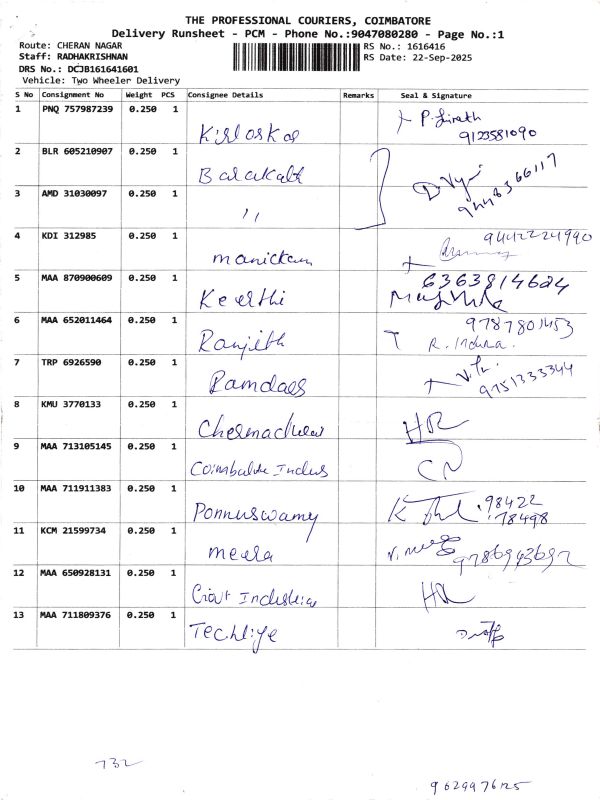 THE PROFESSIONAL COURIERS, COIMBATORE
Delivery Runsheet - PCM - Phone No.:9047080280 - Page No.:1
Route: CHERAN NAGAR
RS No.: 1616416
Staff: RADHAKRISHNAN
RS Date: 22-Sep-2025
DRS No.: DCJB161641601
Vehicle: Two Wheeler Delivery
S No Consignment No Weight PCS Consignee Details Remarks Seal & Signature
1 PNQ 757987239 0.250 1 Kirloskar
9123581090
2 BLR 605210907 0.250 1 Barakath
9448366117
3 AMD 31030097 0.250 1 ,,
4 KDI 312985 0.250 1 manickam 9442224990
5 MAA 870900609 0.250 1 Keerthi 6363814624
6 MAA 652011464 0.250 1 Ranjith 9787801453
R. Indira.
7 TRP 6926590 0.250 1 Ramdaes
9751333344
8 KMU 3770133 0.250 1 HR
9 MAA 713105145 0.250 1 Coimbatore Indus
10 MAA 711911383 0.250 1 Ponnuswamy 98422
78498
11 KCM 21599734 0.250 1 meera
12 MAA 650928131 0.250 1 HR
13 MAA 711809376 0.250 1
732
9629976125